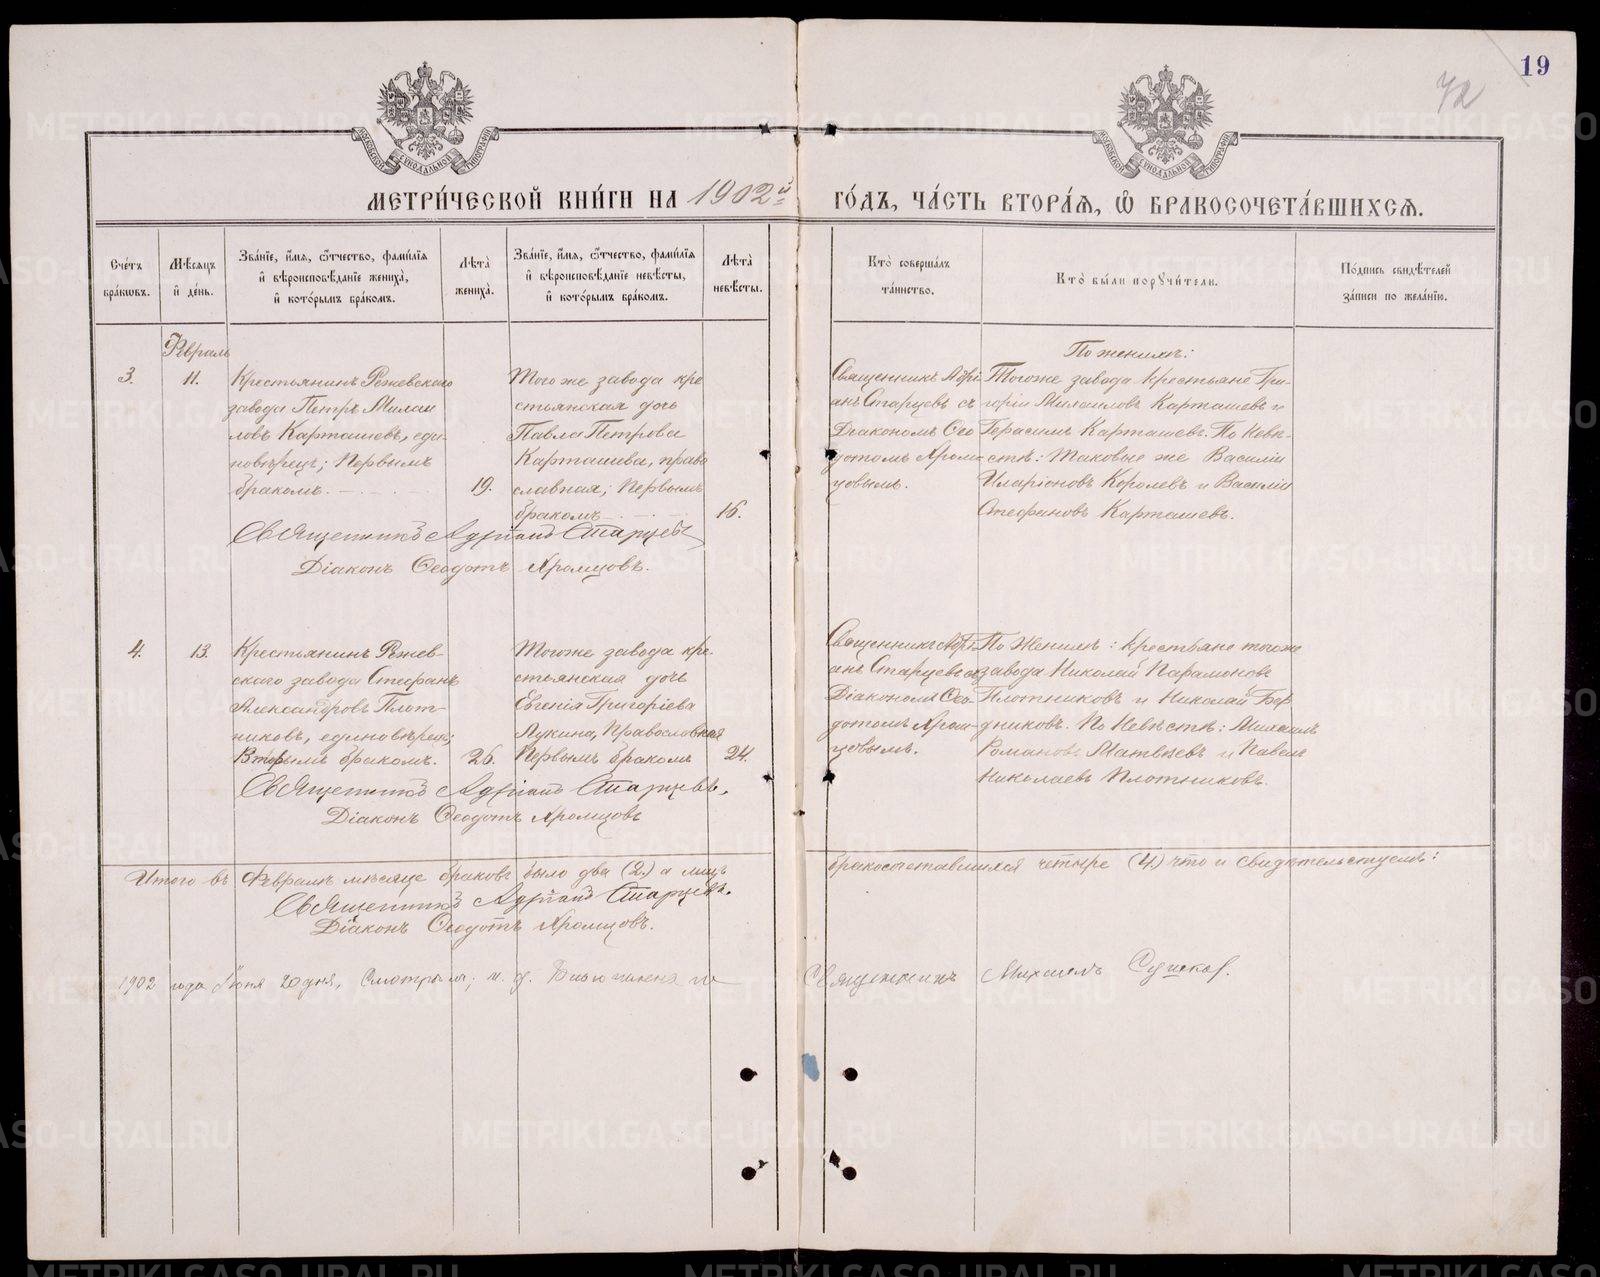 19
72
МОСКОВСКОЙ СУНОДАЛЬНОЙ ТИПОГРАФІИ
МОСКОВСКОЙ СУНОДАЛЬНОЙ ТИПОГРАФІИ
МЕТРИ́ЧЕСКОЙ КНИ́ГИ НА 1902й
ГО́ДЪ, ЧА́СТЬ ВТОРА́Я, Ѡ҆ БРАКОСОЧЕТА́ВШИХСѦ.
Сче́тъ
бра́кѡвъ.
Мѣ́сяцъ
и҆ де́нь.
Зва́нїе, и҆́мѧ, ѻ҆́тчество, фами́лїѧ
и҆ вѣроисповѣ́данїе жениха̀,
и҆ кото́рымъ бра́комъ.
Лѣта̀
жениха̀.
Зва́нїе, и҆́мѧ, ѻ҆́тчество, фами́лїѧ
и҆ вѣроисповѣ́данїе невѣ́сты,
и҆ кото́рымъ бра́комъ.
Лѣта̀
невѣ́сты.
Кто̀ соверша́лъ
та́инство.
Кто̀ бы́ли порꙋчи́тели.
По́дпись свидѣ́телей
за́писи по жела́нїю.
Февраль
3.
11.
Крестьянинъ Режевскаго
завода Петръ Михаи
ловъ Карташевъ, еди-
новѣрецъ; Первымъ
бракомъ.
19.
Того же завода кре
стьянская дочь
Павла Петрова
Карташева, право
славная; Первымъ
бракомъ
16.
Священникъ Адрі
анъ Старцевъ съ
Діакономъ Ѳео
дотомъ Хром-
цовымъ.
По женихѣ:
Тогоже завода крестьяне Гри-
горій Михаиловъ Карташевъ и
Герасимъ Карташевъ. По Невѣ-
стѣ: таковые же Василій
Иларіоновъ Королевъ и Василій
Стефановъ Карташевъ.
Священникъ Адріанъ Старцевъ
Діаконъ Ѳеодотъ Хромцовъ.
4.
13.
Крестьянинъ Режев-
скаго завода Стефанъ
Александровъ Плот-
никовъ, единовѣрецъ;
Вторымъ бракомъ.
26.
Тогоже завода кре-
стьянская дочь
Евгенія Григоріева
Лукина, Православная
Первымъ бракомъ
24.
Священникъ Адрі-
анъ Старцевъ съ
Діакономъ Ѳео-
дотомъ Хром-
цовымъ.
По Женихѣ: крестьяне тогоже
завода Николай Парамоновъ
Плотниковъ и Николай Бер
дниковъ. По Невѣстѣ: Михаилъ
Романовъ Матвѣевъ и Павелъ
Николаевъ Плотниковъ.
Священникъ Адріанъ Старцевъ.
Діаконъ Ѳеодотъ Хромцовъ
Итого въ Февралѣ мѣсяце браковъ было два (2.) а лицъ
бракосочетавшихся четыре (4.) что и свидѣтельствуемъ:
Священникъ Адріанъ Старцевъ.
Діаконъ Ѳеодотъ Хромцовъ.
1902 года Іюня 20 дня, Смотрѣлъ; и. д. Благочиннаго
Священникъ Михаилъ Сушков.
METRIKI.GASO-URAL.RU